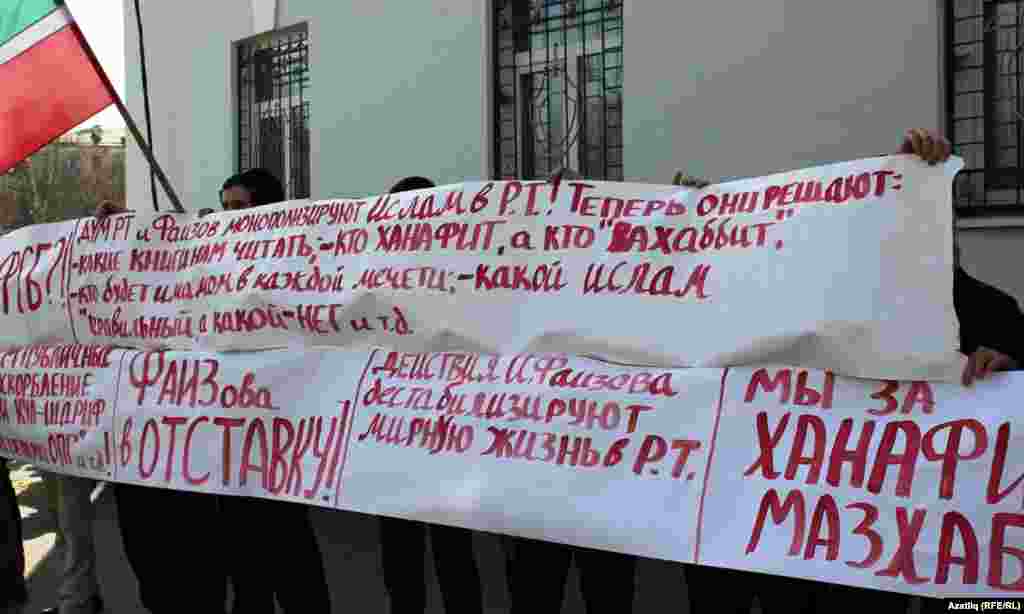 ДУМ РТ и Фаизов монополизируют Ислам в Р.Т.! Теперь они решают:
-какие книги нам читать;-кто ханафит, а кто "вахаббит".
-кто будет имамом в каждой мечети;-какой ислам
"правильный а какой-НЕТ и т.д.
публичные
Фаизова
в ОТСТАВКУ!
Действия И.Фаизова
дестабилизируют
мирную жизнь в Р.Т.
МЫ ЗА
ХАНАФИ
МАЗХАБ
Azatliq (RFE/RL)